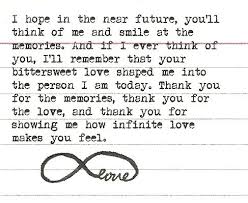 I hope in the near future, you'll
think of me and smile at the
memories. And if I ever think of
you, I'll remember that your
bittersweet love shaped me into
the person I am today. Thank you
for the memories, thank you for
the love, and thank you for
showing me how infinite love
makes you feel.
love